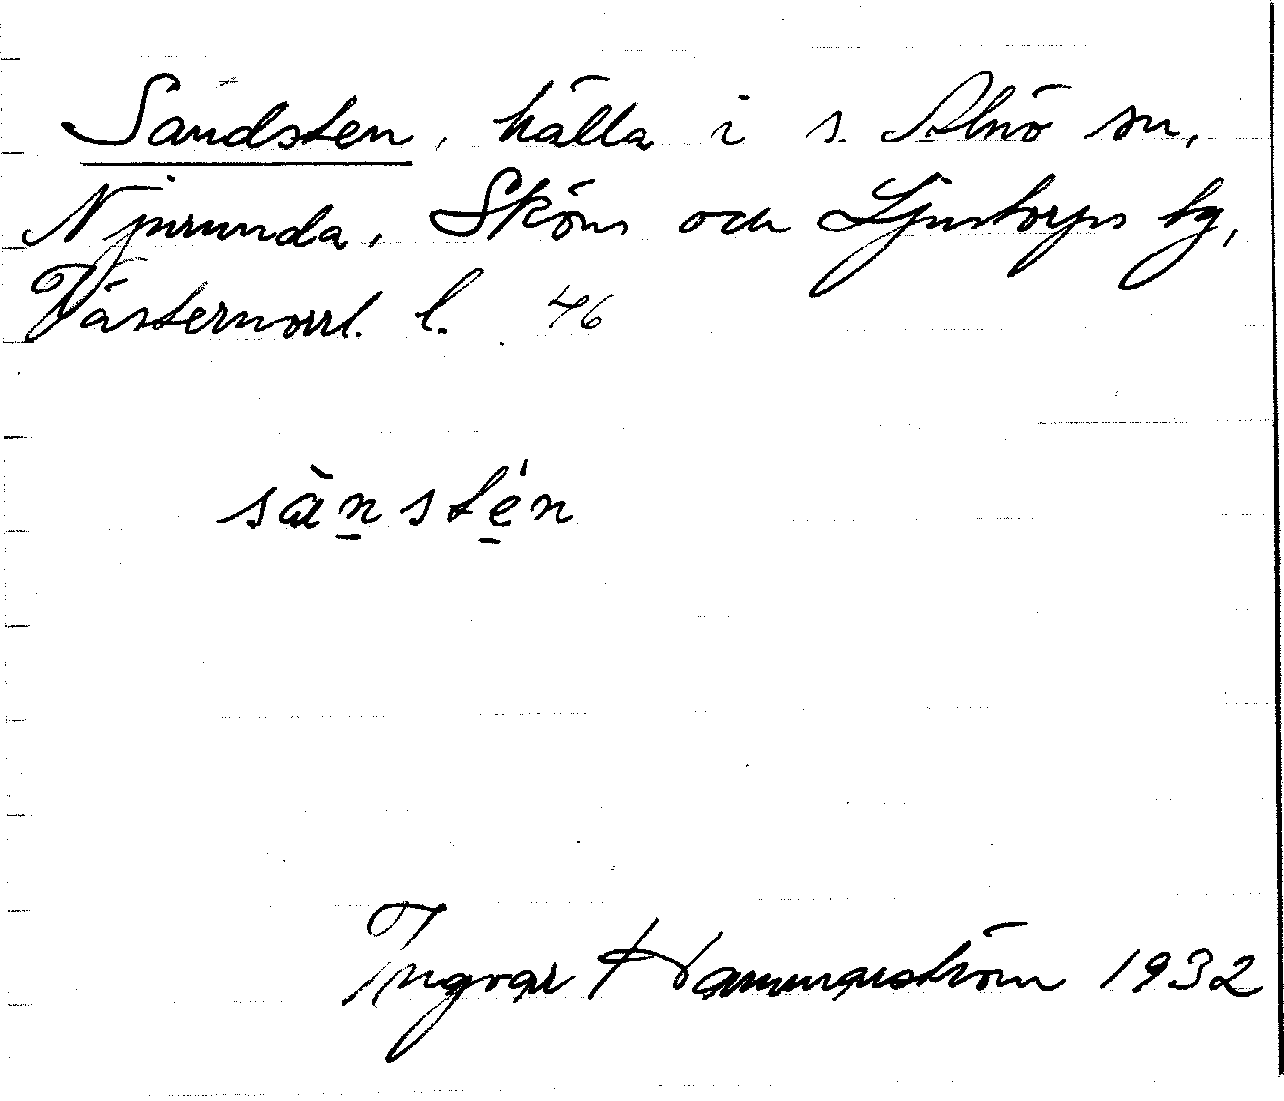 Sandsten, hälla i s. Alnö sn,
Njurunda, Sköns och Ljustorps tg,
Västernorrl. l. 46
sànstén
Ingvar Hammarström 1932